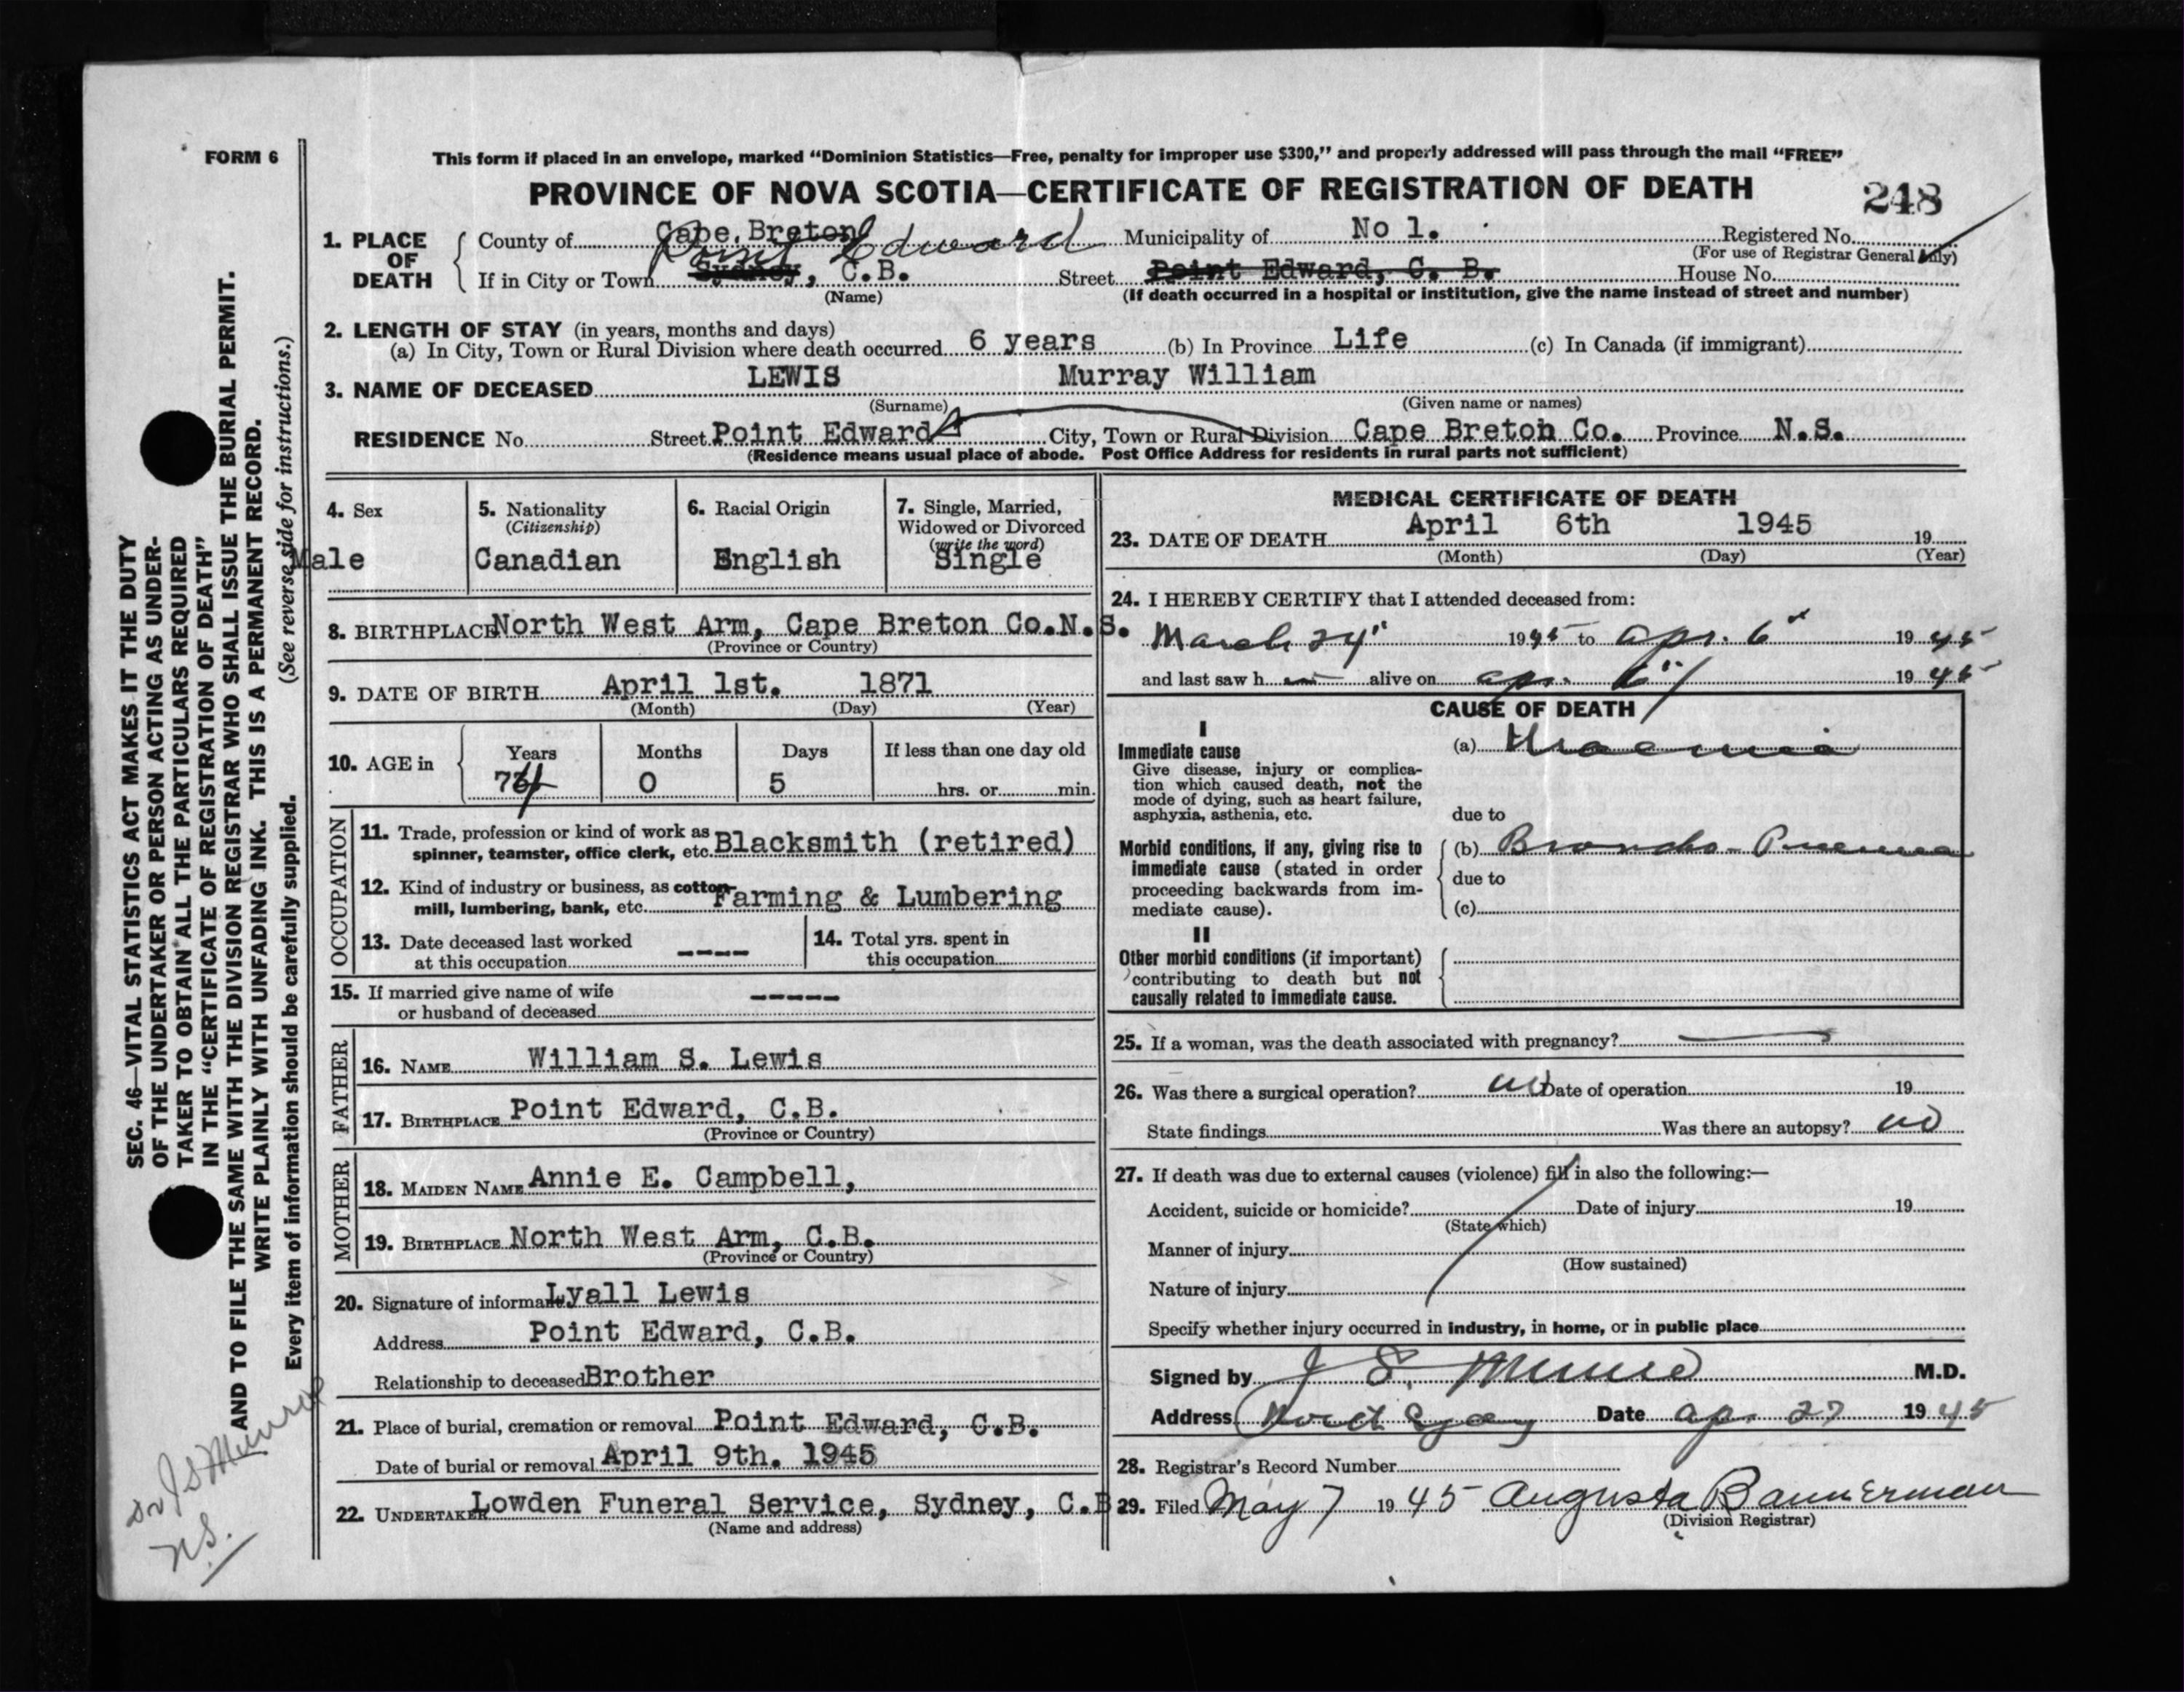 FORM 6
This form if placed in an envelope, marked "Dominion Statistics—Free, penalty for improper use $300," and properly addressed will pass through the mail "FREE"
PROVINCE OF NOVA SCOTIA—CERTIFICATE OF REGISTRATION OF DEATH
248
1. PLACE OF DEATH
County of Cape Breton Municipality of No 1. Registered No.
(For use of Registrar General only)
Point Edward
If in City or Town Sydney, C.B. Street Point Edward, C. B. House No.
(Name) (If death occurred in a hospital or institution, give the name instead of street and number)
2. LENGTH OF STAY (in years, months and days)
(a) In City, Town or Rural Division where death occurred 6 years (b) In Province Life (c) In Canada (if immigrant)
3. NAME OF DECEASED LEWIS Murray William
(Surname) (Given name or names)
RESIDENCE No. Street Point Edward City, Town or Rural Division Cape Breton Co. Province N.S.
(Residence means usual place of abode. Post Office Address for residents in rural parts not sufficient)
4. Sex Male
5. Nationality (Citizenship) Canadian
6. Racial Origin English
7. Single, Married, Widowed or Divorced (write the word) Single
8. BIRTHPLACE North West Arm, Cape Breton Co.N.S.
(Province or Country)
9. DATE OF BIRTH April 1st. 1871
(Month) (Day) (Year)
10. AGE in Years 74 Months 0 Days 5 If less than one day old hrs. or min.
OCCUPATION
11. Trade, profession or kind of work as spinner, teamster, office clerk, etc. Blacksmith (retired)
12. Kind of industry or business, as cotton-mill, lumbering, bank, etc. Farming & Lumbering
13. Date deceased last worked at this occupation ----
14. Total yrs. spent in this occupation
15. If married give name of wife or husband of deceased -----
FATHER
16. NAME William S. Lewis
17. BIRTHPLACE Point Edward, C.B.
(Province or Country)
MOTHER
18. MAIDEN NAME Annie E. Campbell,
19. BIRTHPLACE North West Arm, C.B.
(Province or Country)
20. Signature of informant Lyall Lewis
Address Point Edward, C.B.
Relationship to deceased Brother
21. Place of burial, cremation or removal Point Edward, C.B.
Date of burial or removal April 9th. 1945
22. UNDERTAKER Lowden Funeral Service, Sydney, C.B
(Name and address)
MEDICAL CERTIFICATE OF DEATH
23. DATE OF DEATH April 6th 1945 19
(Month) (Day) (Year)
24. I HEREBY CERTIFY that I attended deceased from:
March 24" 1945 to Apr. 6" 1945
and last saw h alive on Apr. 6" 1945
CAUSE OF DEATH
I
Immediate cause
Give disease, injury or complication which caused death, not the mode of dying, such as heart failure, asphyxia, asthenia, etc.
(a) Uraemia
due to
Morbid conditions, if any, giving rise to immediate cause (stated in order proceeding backwards from immediate cause).
(b) Broncho-
due to
(c)
II
Other morbid conditions (if important) contributing to death but not causally related to immediate cause.
25. If a woman, was the death associated with pregnancy?
26. Was there a surgical operation? no Date of operation 19
State findings Was there an autopsy? no
27. If death was due to external causes (violence) fill in also the following:—
Accident, suicide or homicide? Date of injury 19
(State which)
Manner of injury
(How sustained)
Nature of injury
Specify whether injury occurred in industry, in home, or in public place
Signed by J S. Munro M.D.
Address North Sydney Date Apr 27 1945
28. Registrar's Record Number
29. Filed May 7 1945 Augusta Bannerman
(Division Registrar)
SEC. 46—VITAL STATISTICS ACT MAKES IT THE DUTY
OF THE UNDERTAKER OR PERSON ACTING AS UNDER-
TAKER TO OBTAIN ALL THE PARTICULARS REQUIRED
IN THE "CERTIFICATE OF REGISTRATION OF DEATH"
AND TO FILE THE SAME WITH THE DIVISION REGISTRAR WHO SHALL ISSUE THE BURIAL PERMIT.
WRITE PLAINLY WITH UNFADING INK. THIS IS A PERMANENT RECORD.
Every item of information should be carefully supplied. (See reverse side for instructions.)
Dr J S Munroe
N.S.